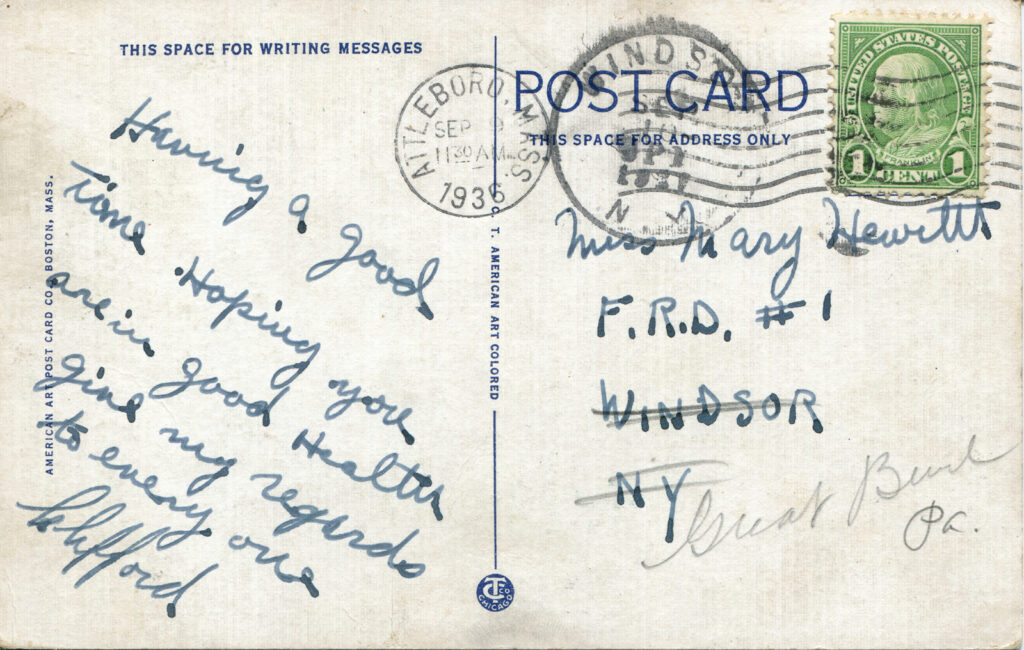 THIS SPACE FOR WRITING MESSAGES
Having a good
time Hoping you
are in good Health
give my regards
to every one
AMERICAN ART POST CARD CO. BOSTON, MASS.
C. T. AMERICAN ART COLORED
CT CO
CHICAGO
ATTLEBORO, MASS
SEP 9
1130 AM
1936
POST CARD
THIS SPACE FOR ADDRESS ONLY
WINDSOR
SEP
N
UNITED STATES POSTAGE
FRANKLIN
1 CENT 1
Miss Mary Hewitt
F.R.D. #1
WINDSOR
NY
Great Bend
Pa.